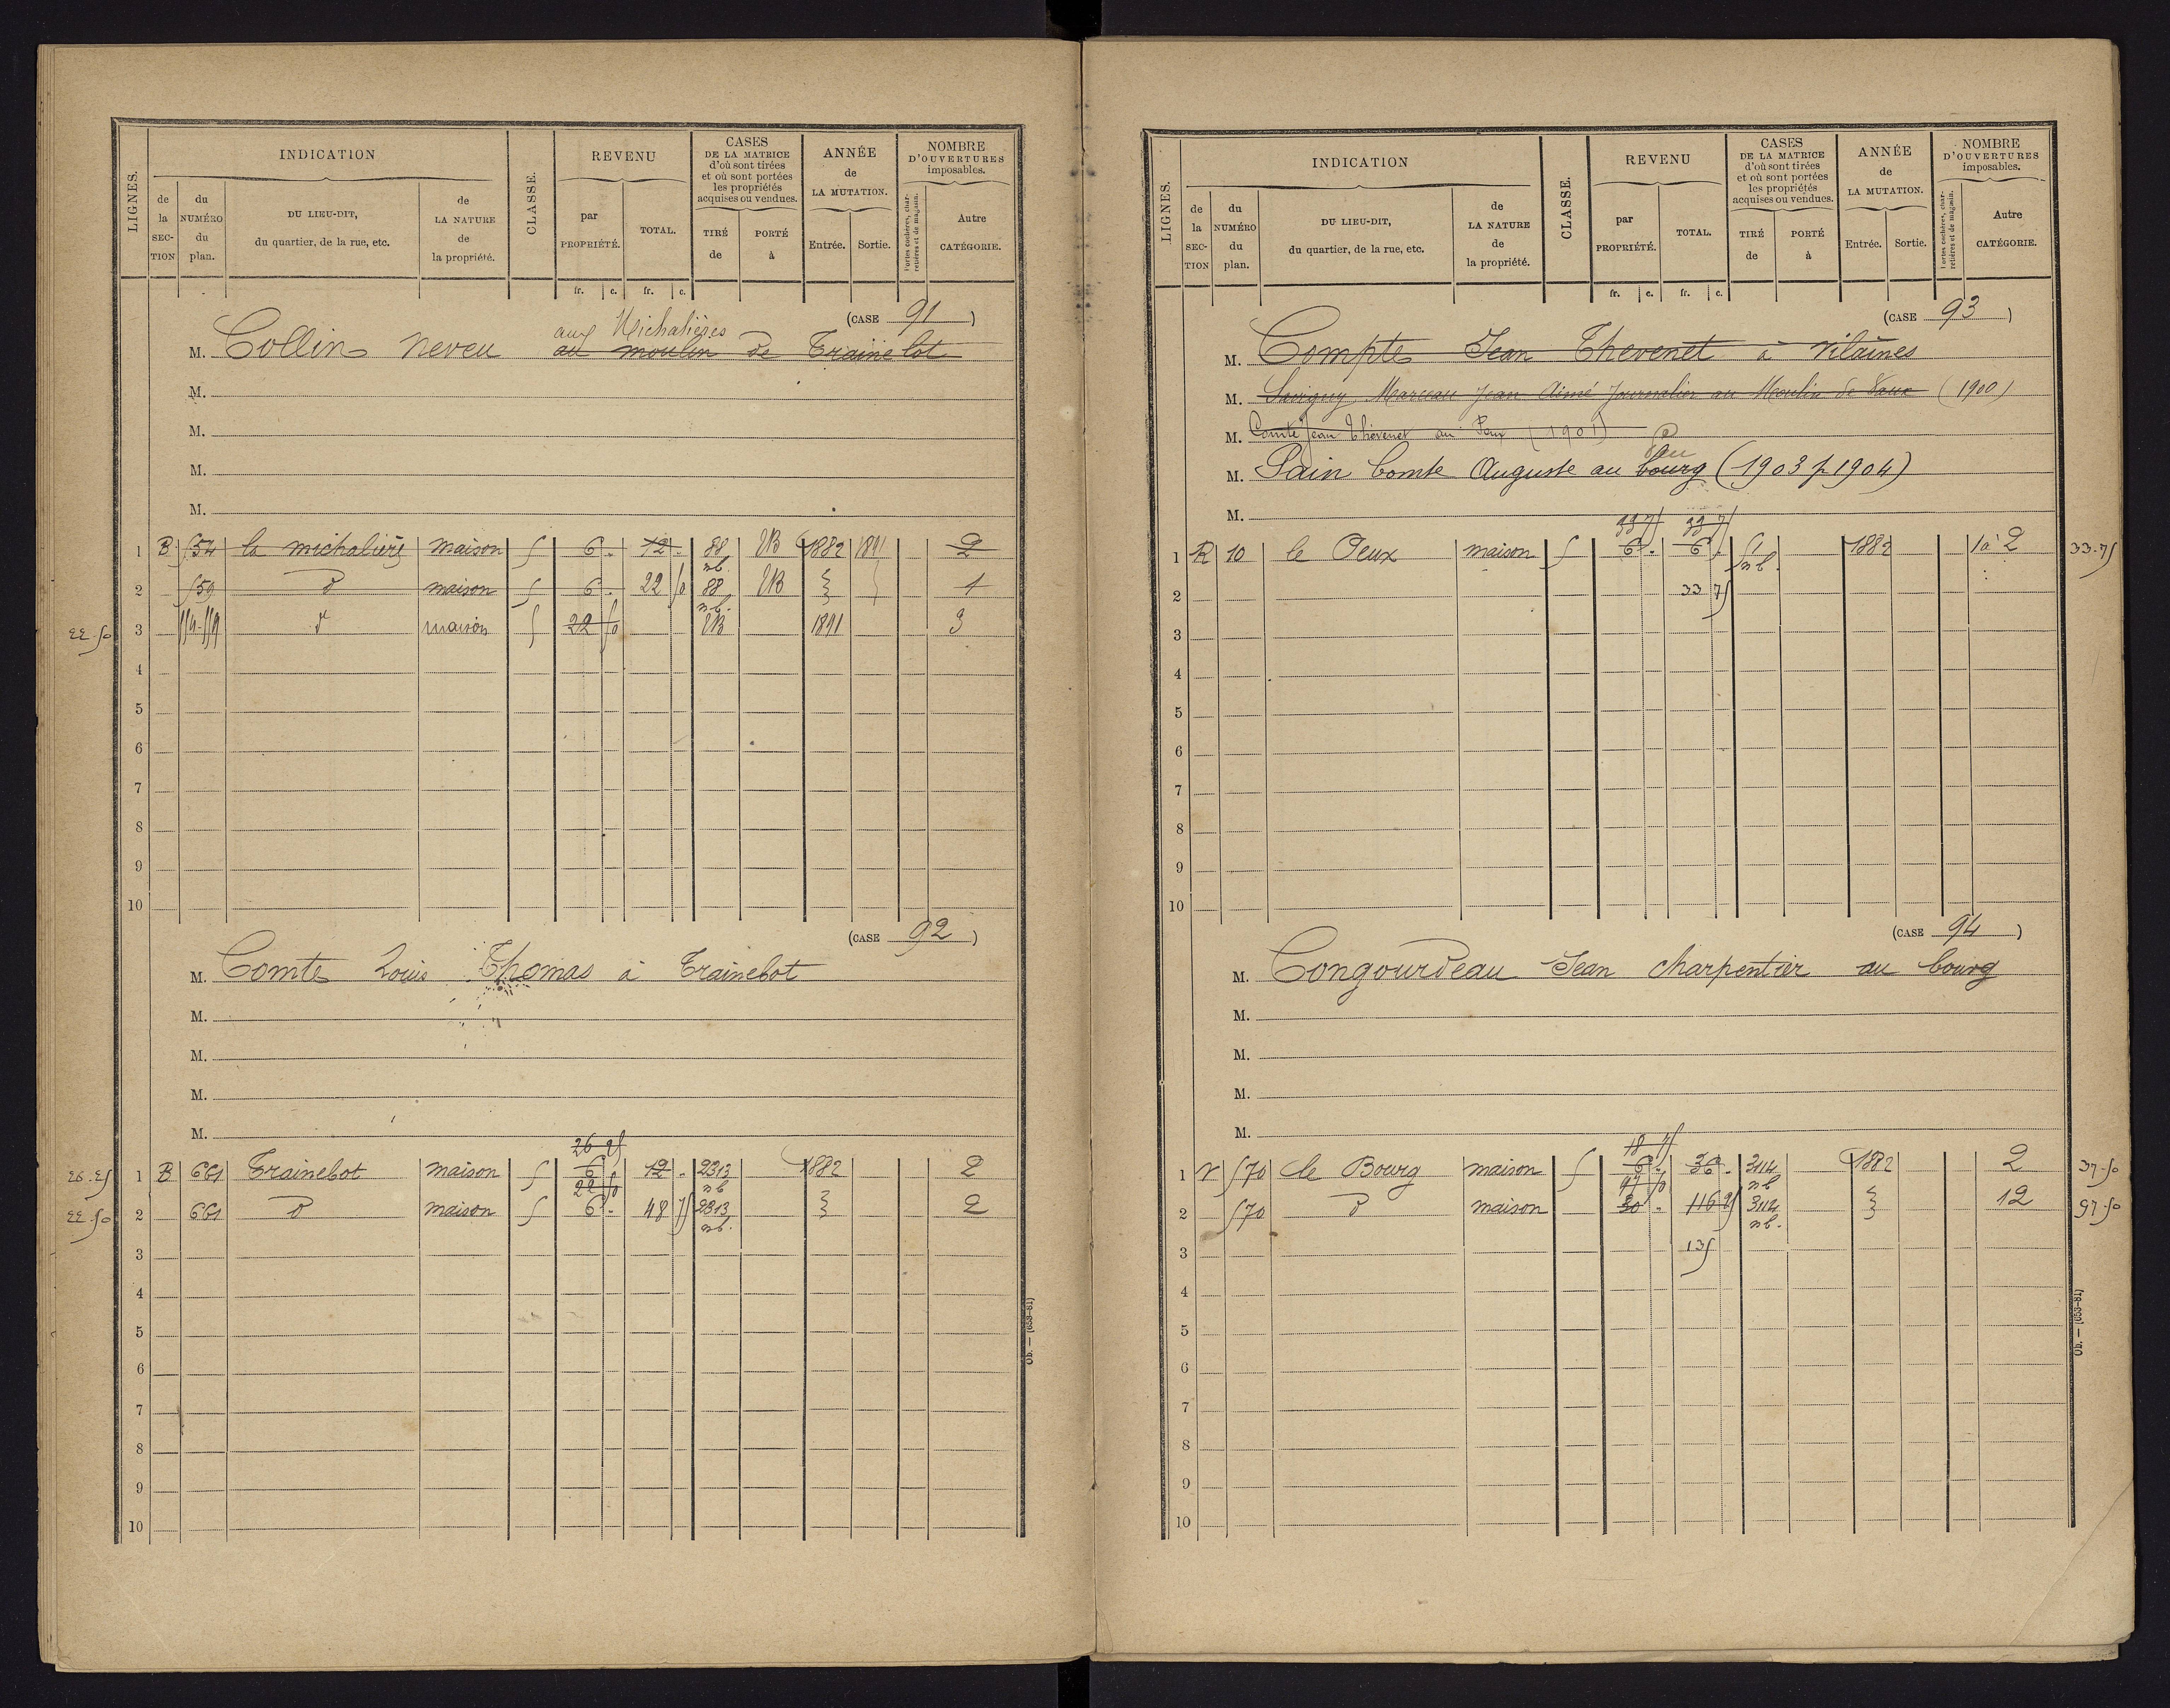 LIGNES.
INDICATION
de la SECTION
du NUMÉRO du plan.
DU LIEU-DIT, du quartier, de la rue, etc.
de LA NATURE de la propriété.
CLASSE.
REVENU
par PROPRIÉTÉ.
TOTAL.
CASES DE LA MATRICE d'où sont tirées et où sont portées les propriétés acquises ou vendues.
TIRÉ de
PORTÉ à
ANNÉE de LA MUTATION.
Entrée.
Sortie.
NOMBRE D'OUVERTURES imposables.
Portes cochères, charretières et de magasin.
Autre CATÉGORIE.
fr. c. fr. c.
(CASE 91)
aux Michalières
M. Collin neveu au moulin de Trainelot
M.
M.
M.
M.
1 B 554 la michaliere maison 5 6 - 12 - 88 nb. VB 1882 1891 2
2 559 d° maison 5 6 - 22 50 88 nb. VB 1
22-50 3 554-559 d° maison 5 22 50 VB 1891 3
4
5
6
7
8
9
10
(CASE 92)
M. Comte Louis Thomas à Trainelot
M.
M.
M.
M.
26 25
26-25 1 B 661 Trainelot maison 5 6 12 - 2313 nb 1882 2
22 50
22-50 2 661 d° maison 5 6 - 48 75 2313 nb. 2
3
4
5
6
7
8
9
10
Ob. — (653-81)
LIGNES.
INDICATION
de la SECTION
du NUMÉRO du plan.
DU LIEU-DIT, du quartier, de la rue, etc.
de LA NATURE de la propriété.
CLASSE.
REVENU
par PROPRIÉTÉ.
TOTAL.
CASES DE LA MATRICE d'où sont tirées et où sont portées les propriétés acquises ou vendues.
TIRÉ de
PORTÉ à
ANNÉE de LA MUTATION.
Entrée.
Sortie.
NOMBRE D'OUVERTURES imposables.
Portes cochères, charretières et de magasin.
Autre CATÉGORIE.
fr. c. fr. c.
(CASE 93)
M. Compte Jean Thevenet à Vilaines
M. Savigny Marceau Jean Aimé Journalier au Moulin de Vaux (1900)
M. Comte Jean Thévenet au (1901)
M. Pain Comte Auguste au bourg (1903 p 1904)
M.
33 75 33 75
1 R 10 le Peux maison 5 6 - 6 - 51 nb. 1882 1 à 2 33-75
2 33 75
3
4
5
6
7
8
9
10
(CASE 94)
M. Congourdeau Jean charpentier au bourg
M.
M.
M.
M.
18 75
1 V 570 le Bourg maison 5 6 - 36 - 3114 nb 1882 2 37-50
97 50
2 570 d° maison 30 - 116 25 3114 nb. 12 97-50
3 135
4
5
6
7
8
9
10
Ob. — (653-81)